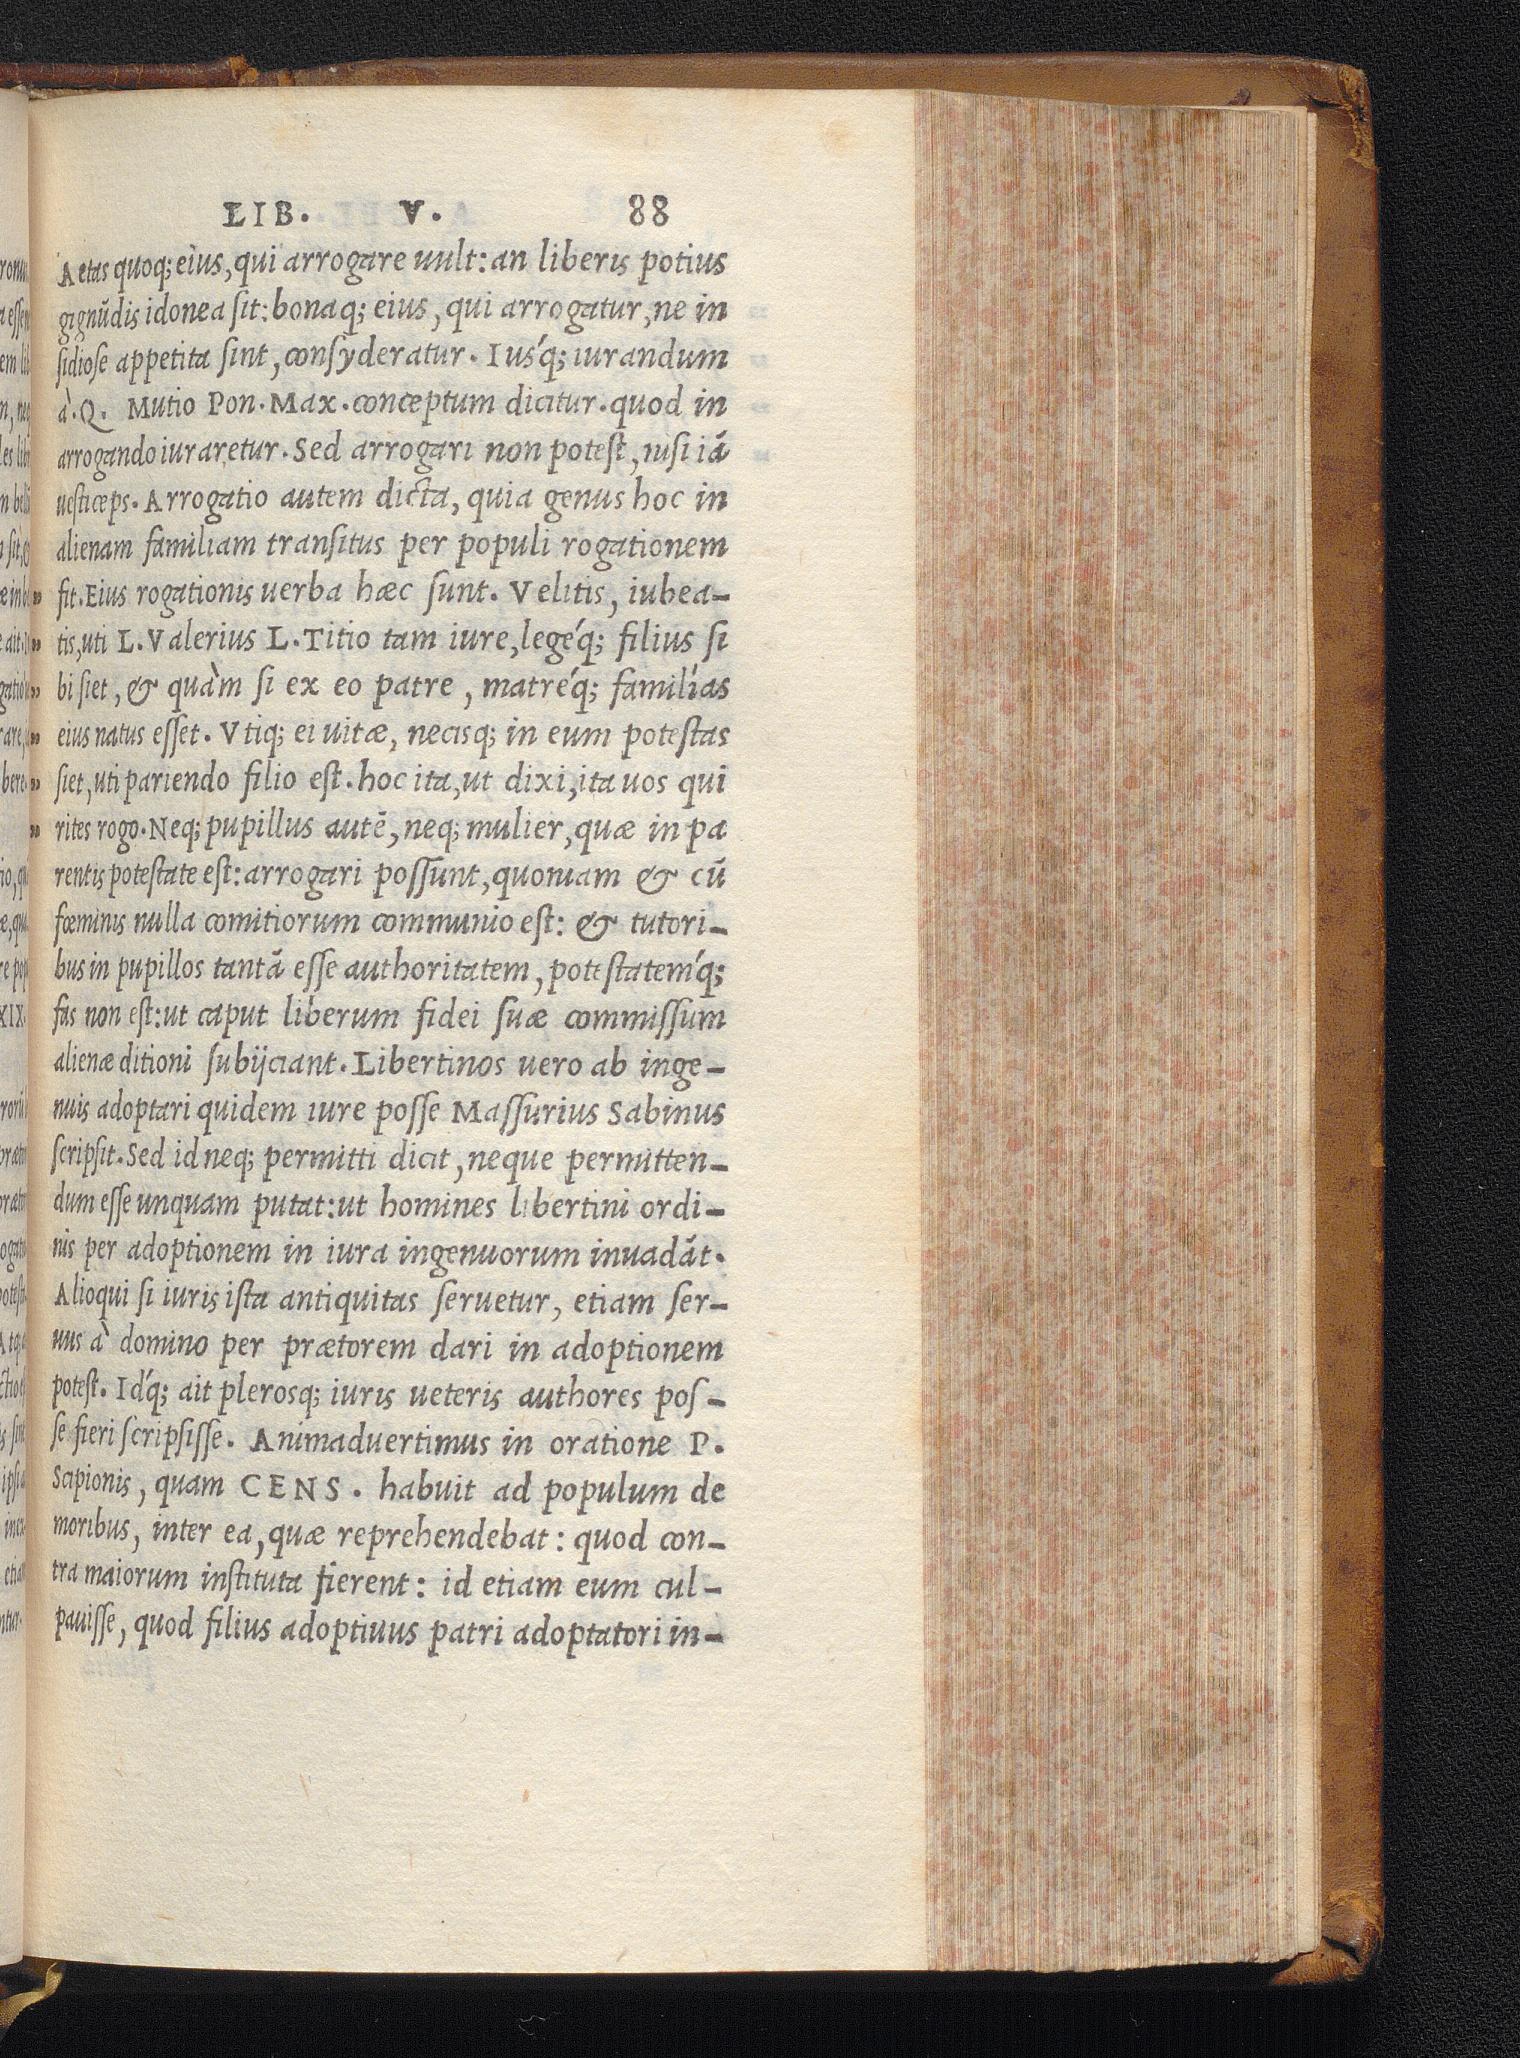 LIB. V. 88
Aetas quoq; eius, qui arrogare uult: an liberis potius
gignūdis idonea sit: bonaq; eius, qui arrogatur, ne in
sidiose appetita sint, consyderatur. Iusq́; iurandum
à. Q. Mutio Pon. Max. conceptum dicitur. quod in
arrogando iuraretur. Sed arrogari non potest, nisi iā
uesticeps. Arrogatio autem dicta, quia genus hoc in
alienam familiam transitus per populi rogationem
fit. Eius rogationis uerba hæc sunt. Velitis, iubea-
tis, uti L. Valerius L. Titio tam iure, legeq́; filius si
bi siet, & quàm si ex eo patre, matreq́; familías
eius natus esset. Vtiq; ei uitæ, necisq; in eum potestas
siet, uti pariendo filio est. hoc ita, ut dixi, ita uos qui
rites rogo. Neq; pupillus autē, neq; mulier, quæ in pa
rentis potestate est: arrogari possunt, quoniam & cū
fœminis nulla comitiorum communio est: & tutori-
bus in pupillos tantā esse authoritatem, potestatemq́;
fas non est: ut caput liberum fidei suæ commissum
alienæ ditioni subijciant. Libertinos uero ab inge-
nuis adoptari quidem iure posse Massurius Sabinus
scripsit. Sed id neq; permitti dicit, neque permitten-
dum esse unquam putat: ut homines libertini ordi-
nis per adoptionem in iura ingenuorum inuadāt.
Alioqui si iuris ista antiquitas seruetur, etiam ser-
uus à domino per prætorem dari in adoptionem
potest. Idq́; ait plerosq; iuris ueteris authores pos-
se fieri scripsisse. Animaduertimus in oratione P.
Scipionis, quam CENS. habuit ad populum de
moribus, inter ea, quæ reprehendebat: quod con-
tra maiorum instituta fierent: id etiam eum cul-
pauisse, quod filius adoptiuus patri adoptatori in-